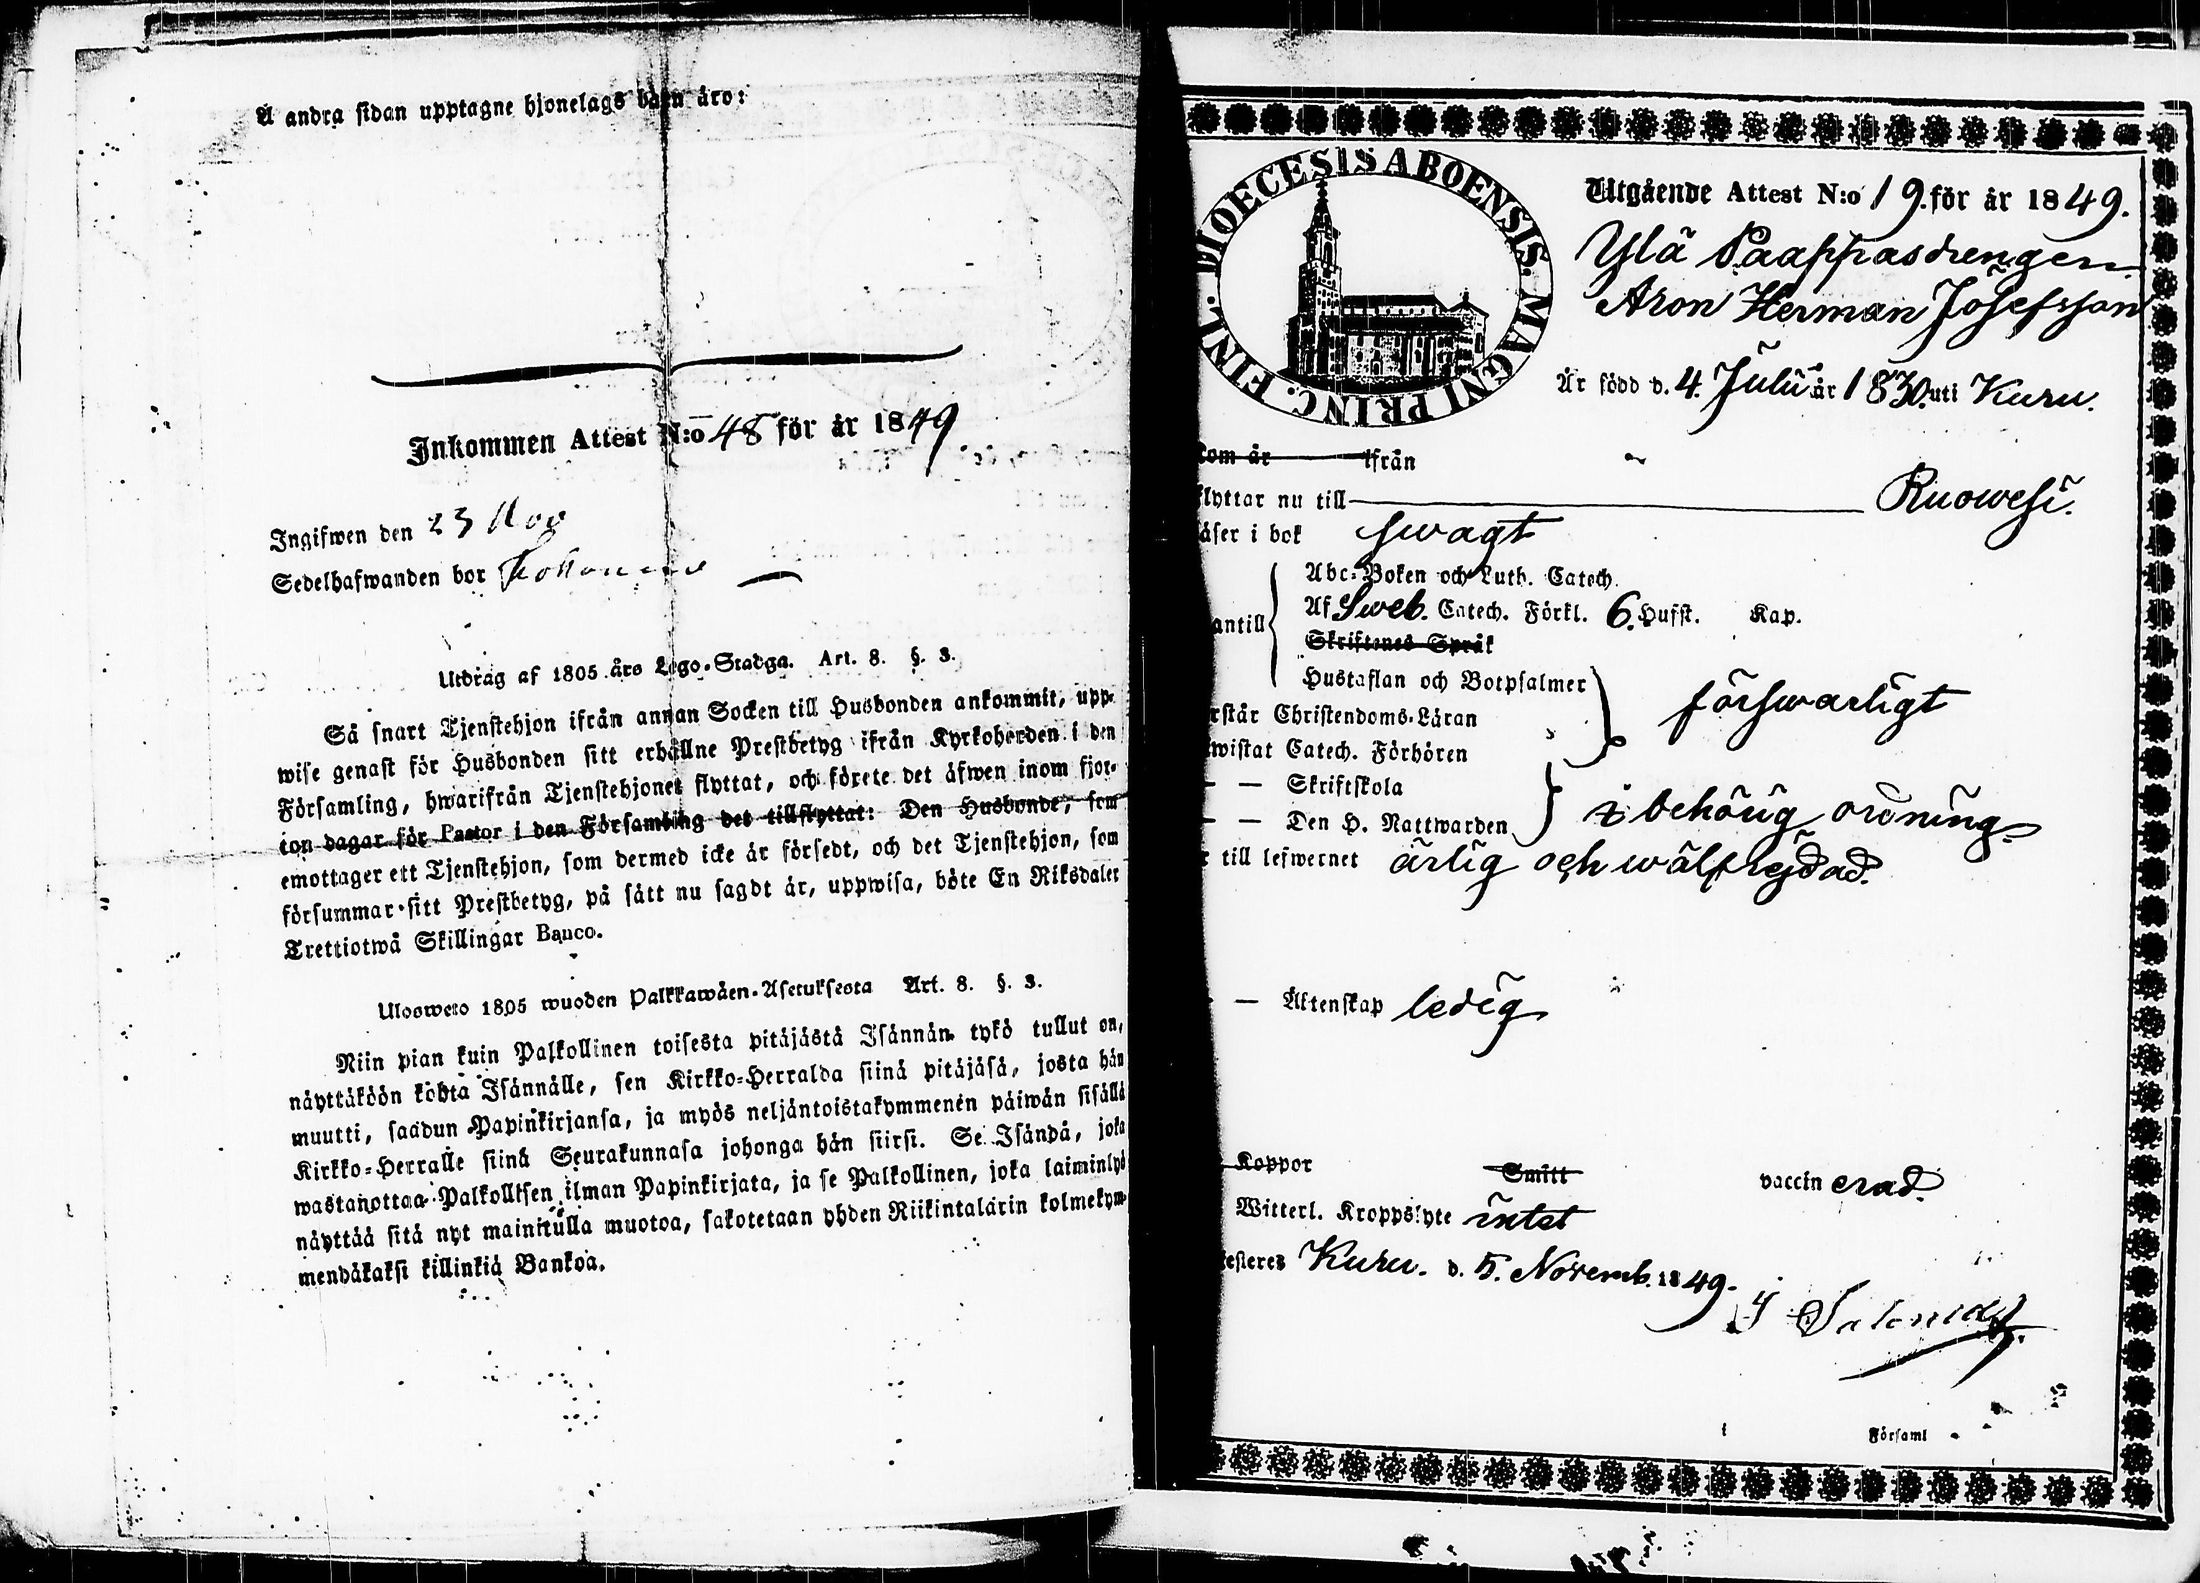 Å andra sidan upptagne hjonelags barn äro:
Inkommen Attest N:o 48 för år 1849
Ingifwen den 23 Nov
Sedelhafwanden bor
Utdrag af 1805 års Lego-Stadga. Art. 8. §. 3.
Så snart Tjenstehjon ifrån annan Socken till Husbonden ankommit, upp-
wise genast för Husbonden sitt erhållne Prestbetyg ifrån Kyrkoherden i den
Församling, hwarifrån Tjenstehjonet flyttat, och förete det äfwen inom fjor-
ton dagar för Pastor i den Församling det tillflyttat: Den Husbonde, som
emottager ett Tjenstehjon, som dermed icke är försedt, och det Tjenstehjon, som
försummar sitt Prestbetyg, på sätt nu sagdt är, uppwisa, böte En Riksdaler
Trettiotwå Skillingar Banco.
Uloswето 1805 wuoden Palkkawäen-Asetuksesta Art. 8. §. 3.
Niin pian kuin Palkollinen toisesta pitäjästä Isännän tykö tullut on,
näyttäköön kohta Isännälle, sen Kirkko-Herralda siinä pitäjäsä, josta hän
muutti, saadun Papinkirjansa, ja myös neljäntoistakymmenen päiwän sisällä
Kirkko-Herralle siinä Seurakunnasa johonga hän siirsi. Se Isändä, joka
wastanottaa Palkollisen ilman Papinkirjata, ja se Palkollinen, joka laiminlyö
näyttää sitä nyt mainitulla muotoa, sakotetaan yhden Riikintalarin kolmekym-
mendäkaksi killinkiä Bankoa.
FINL. DIOECESIS ABOENSIS. MAGNI PRINC.
Utgående Attest N:o 19. för år 1849.
Ylä Paappasdrengen
Aron Herman Josefsson
Är född d. 4. Julii år 1830. uti Kuru.
kom år ifrån
flyttar nu till Ruowesi.
läser i bok swagt
Abc-Boken och Luth. Catech.
Af Sweb. Catech. Förkl. 6. Hufst. Kap.
antill
Skriftenes Språk
Hustaflan och Botpsalmer
rstår Christendoms-Läran försvarligt
wistat Catech. Förhören
— — Skriftskola
— — Den H. Nattwarden i behörig ordning.
r till lefwernet ärlig och wälfrejdad.
— Äktenskap ledig
Koppor Smitt vaccinerad.
Witterl. Kroppslyte intet
testeres Kuru. d. 5. Novemb. 1849.
J Salenius
Församl